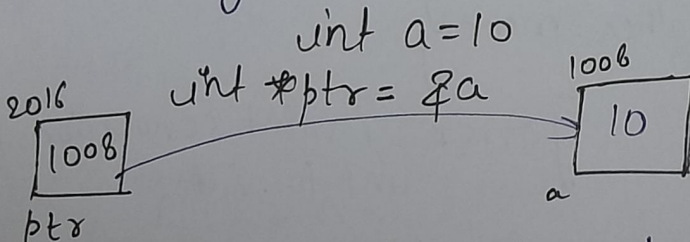 int a = 10
int *ptr = &a
2016
1008
ptr
1008
10
a